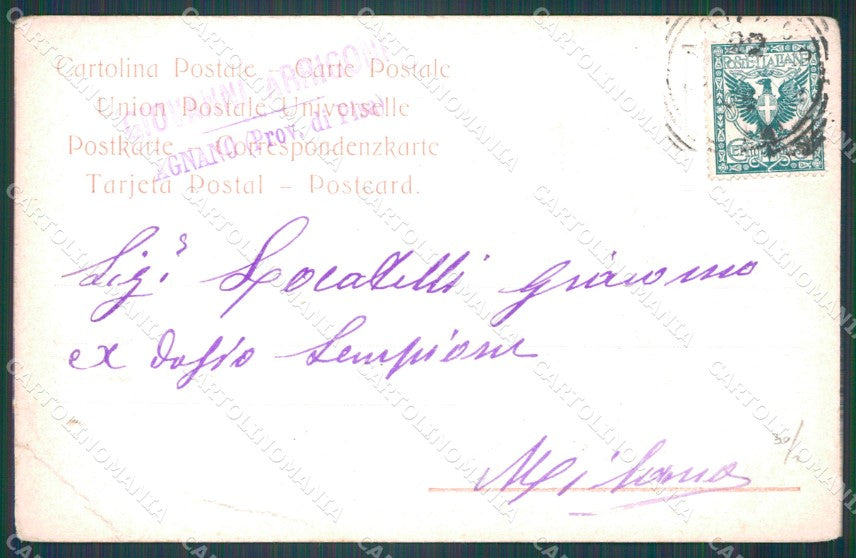 Cartolina Postale - Carte Postale
Union Postale Universelle
Postkarte - Correspondenzkarte
Tarjeta Postal - Postcard.
GIOVANNI ARRIGONI
(Prov. di Pisa)
POSTE ITALIANE
Sigr. Locatelli Giacomo
ex dazio Sempione
Milano
CARTOLINOMANIA